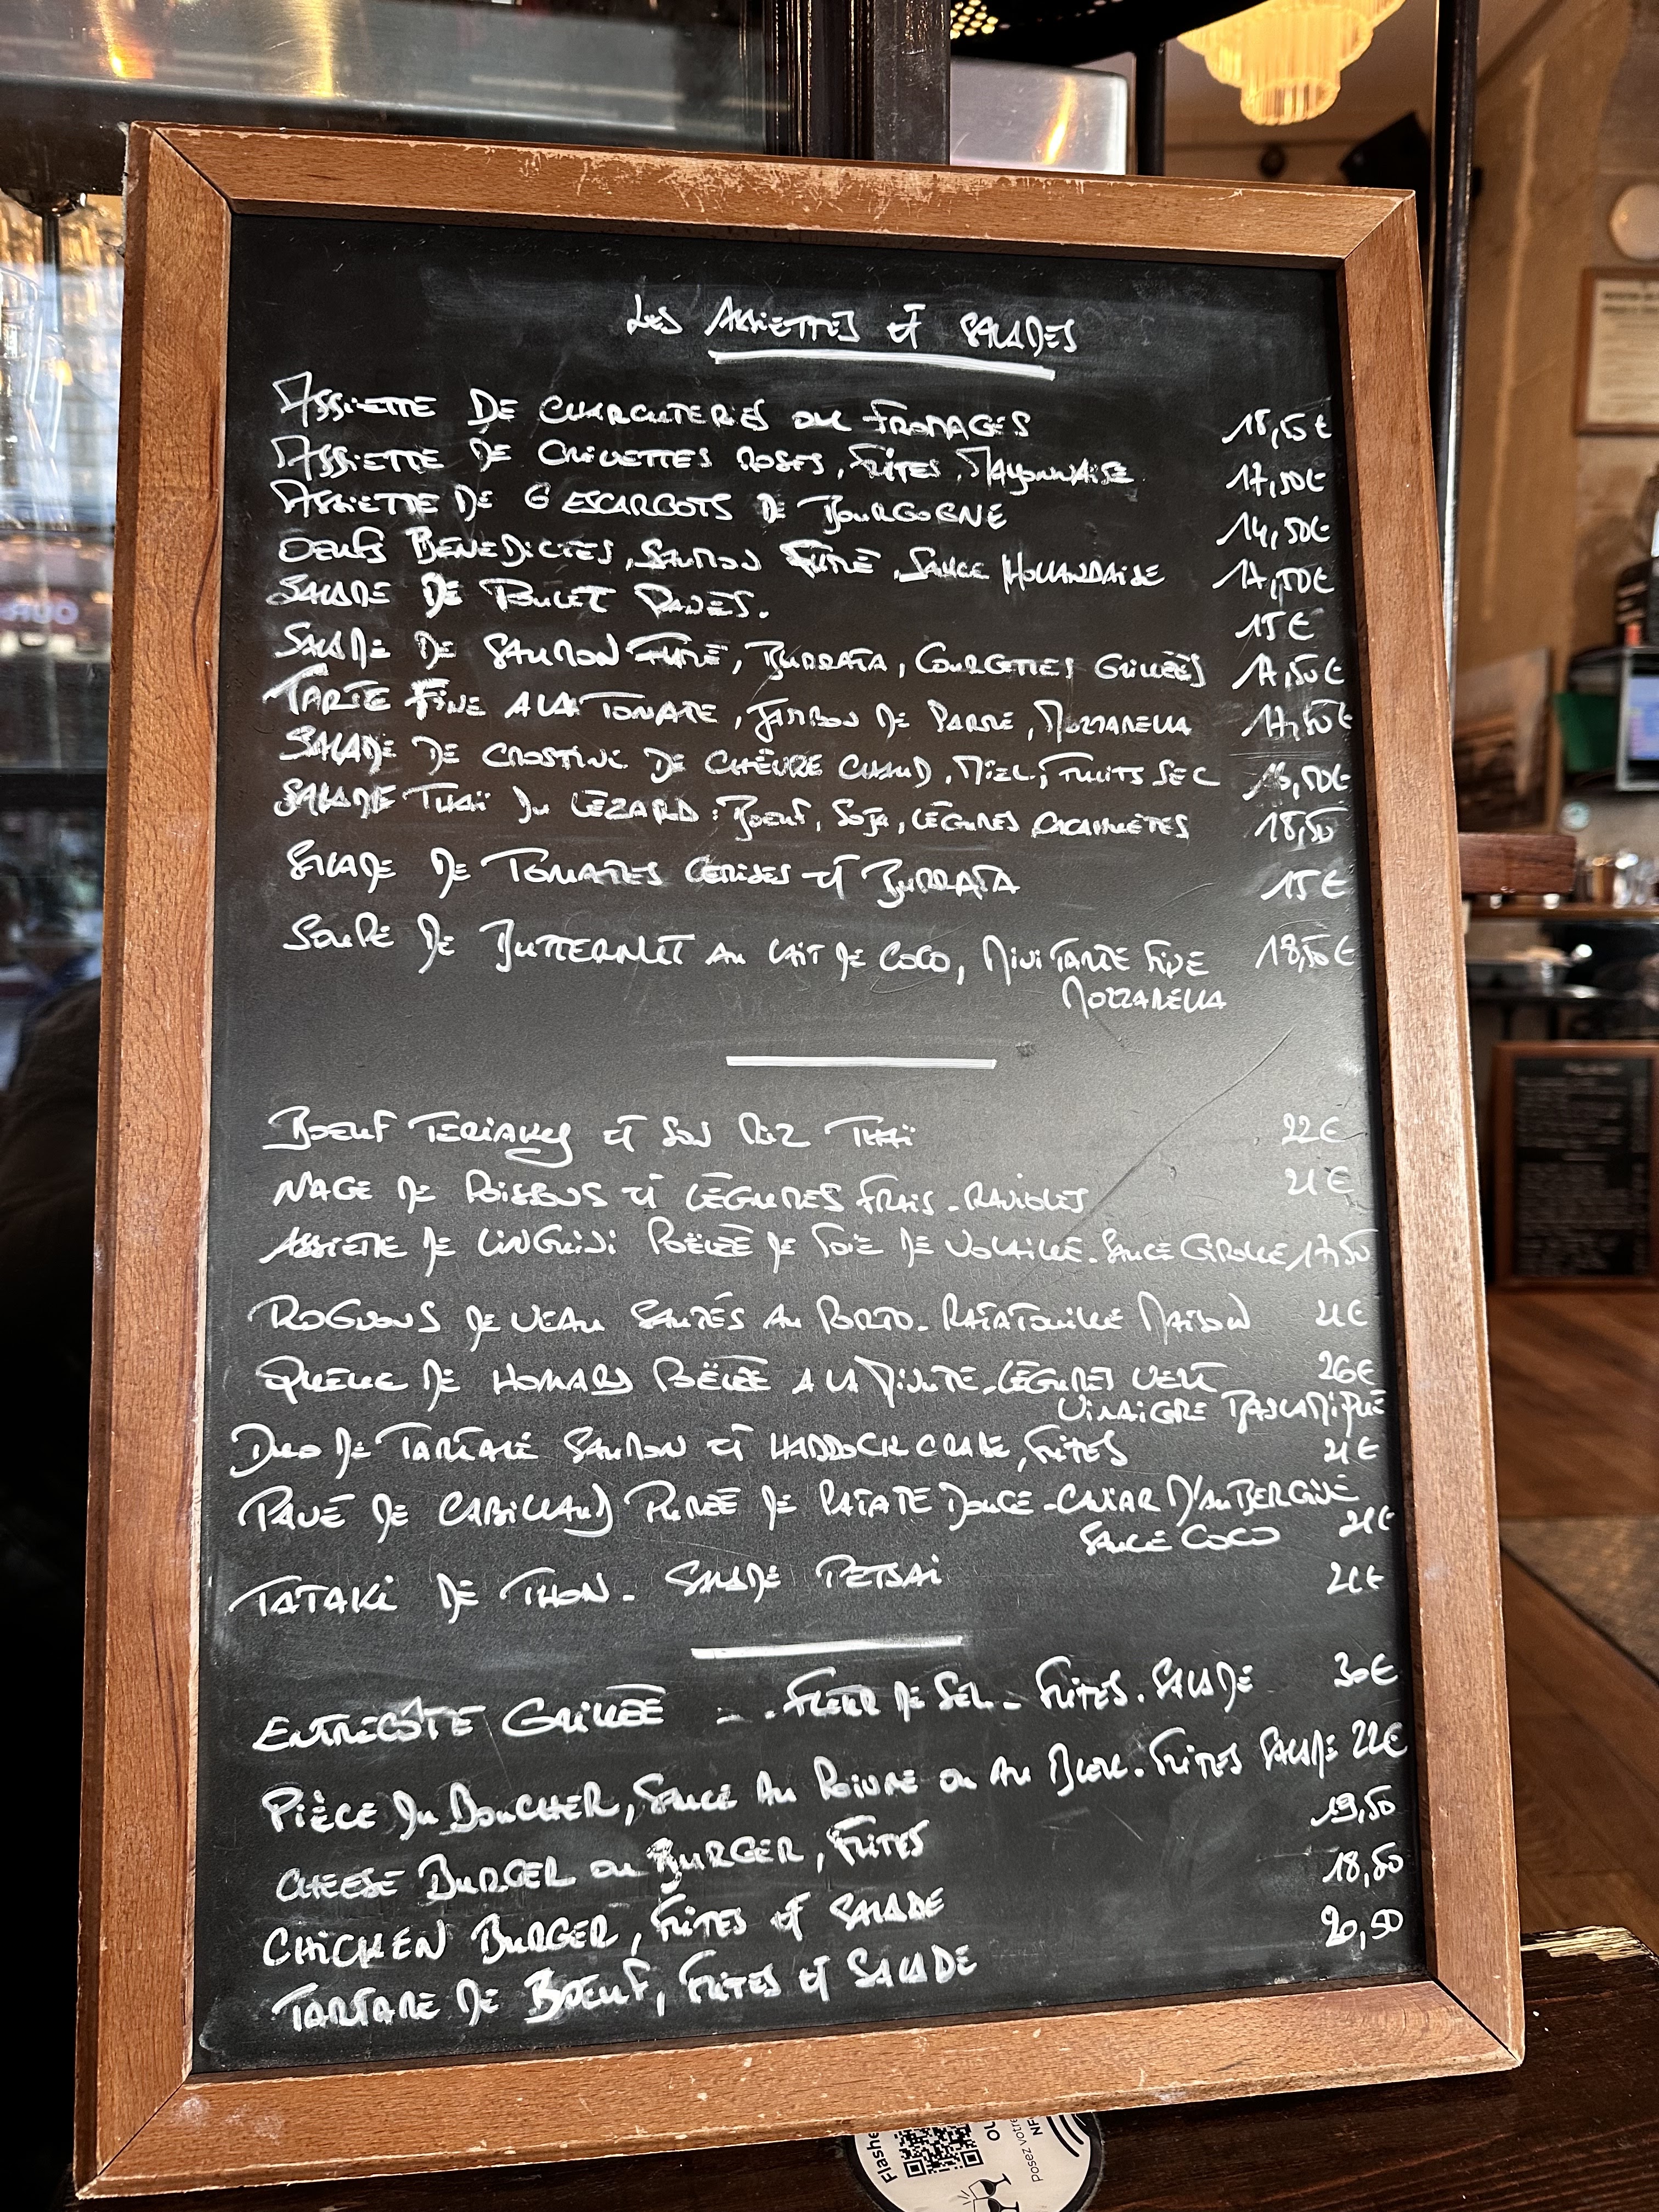 Les Assiettes et Salades
Assiette de charcuteries ou fromages 18,50€
Assiette de crevettes roses, frites, mayonnaise 17,50€
Assiette de 6 escargots de Bourgogne 14,50€
Oeufs Bénédictes, saumon fumé, sauce Hollandaise 17,50€
Salade de poulet panés. 15€
Salade de saumon fumé, burrata, courgettes grillées 17,50€
Tarte fine a la tomate, jambon de Parme, mozzarella 17,50€
Salade de crostini de chèvre chaud, miel, fruits sec 16,50€
Salade Thaï du Lézard : Boeuf, soja, légumes cacahuètes 18,50
Salade de tomates cerises et burrata 15€
Soupe de butternut au lait de coco, mini tarte fine 18,50€
mozzarella
Boeuf Teriaky et son riz Thaï 22€
Nage de poissons et légumes frais - ravioles 21€
Assiette de linguini poêlée de foie de volaille - sauce girolle 17,50
Rognons de veau sautés au porto - ratatouille maison 21€
Queue de homard poëlée a la minute - légumes vert 26€
vinaigre balsamique
Duo de tartare saumon et haddock crabe, frites 21€
Pavé de cabillaud purée de patate douce - caviar d'aubergine
sauce coco 21€
Tataki de thon - salade petsai 21€
Entrecôte grillée - fleur de sel - frites - salade 30€
Pièce du boucher, sauce au poivre ou au bleu - frites salade 22€
Cheese burger ou burger, frites 19,50
Chicken burger, frites et salade 18,50
Tartare de boeuf, frites et salade 20,50
Flashe
Posez votre